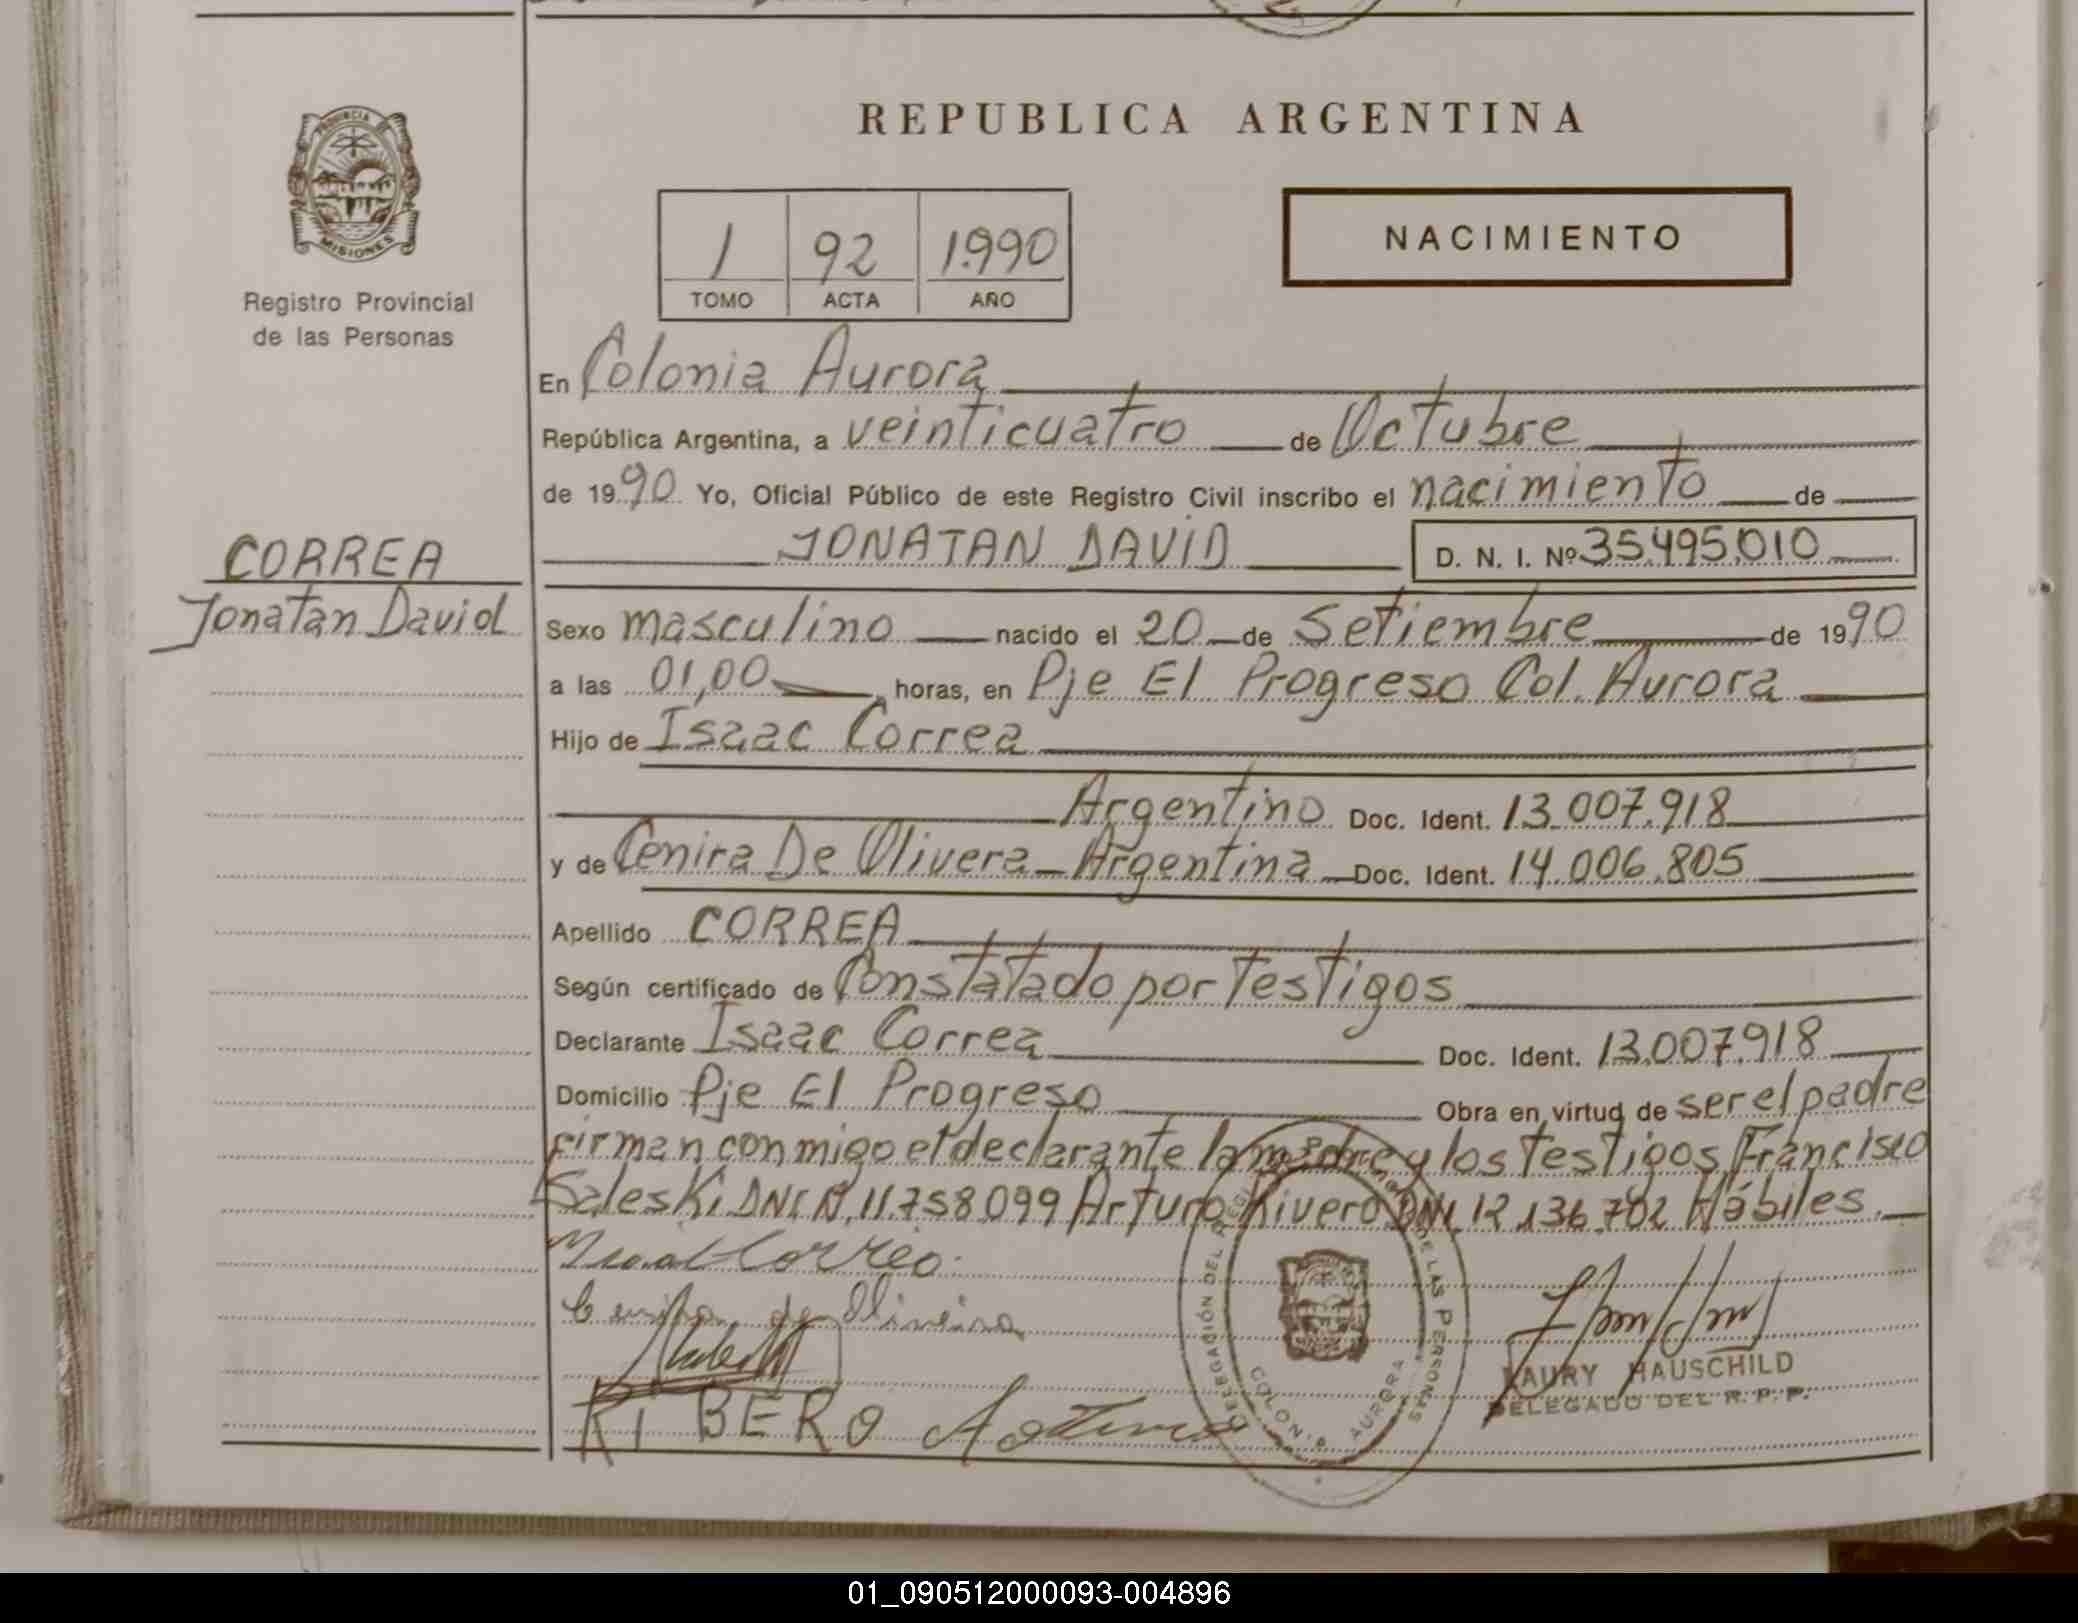 REPUBLICA ARGENTINA
PROVINCIA DE
MISIONES
Registro Provincial
de las Personas
1 92 1.990
TOMO ACTA AÑO
NACIMIENTO
En Colonia Aurora
República Argentina, a veinticuatro de Octubre
de 1990 Yo, Oficial Público de este Registro Civil inscribo el nacimiento de
JONATAN DAVID D. N. I. Nº 35.495.010
CORREA
Jonatan David
Sexo masculino nacido el 20 de Setiembre de 1990
a las 01,00 horas, en Pje El Progreso Col. Aurora
Hijo de Isaac Correa
Argentino Doc. Ident. 13.007.918
y de Cenira De Olivera - Argentina Doc. Ident. 14.006.805
Apellido CORREA
Según certificado de Constatado por Testigos
Declarante Isaac Correa Doc. Ident. 13.007.918
Domicilio Pje El Progreso Obra en virtud de ser el padre
firman conmigo el declarante la madre y los testigos Francisco
Saleski DNI N. 11.758.099 Arturo Rivero DNI 12.136.702 Hábiles.
Correa
de Oliveira
RIBERO Arturo
DELEGACIÓN DEL REGISTRO DE LAS PERSONAS
COLONIA AURORA
LAURY HAUSCHILD
DELEGADO DEL R. P. P.
01_090512000093-004896